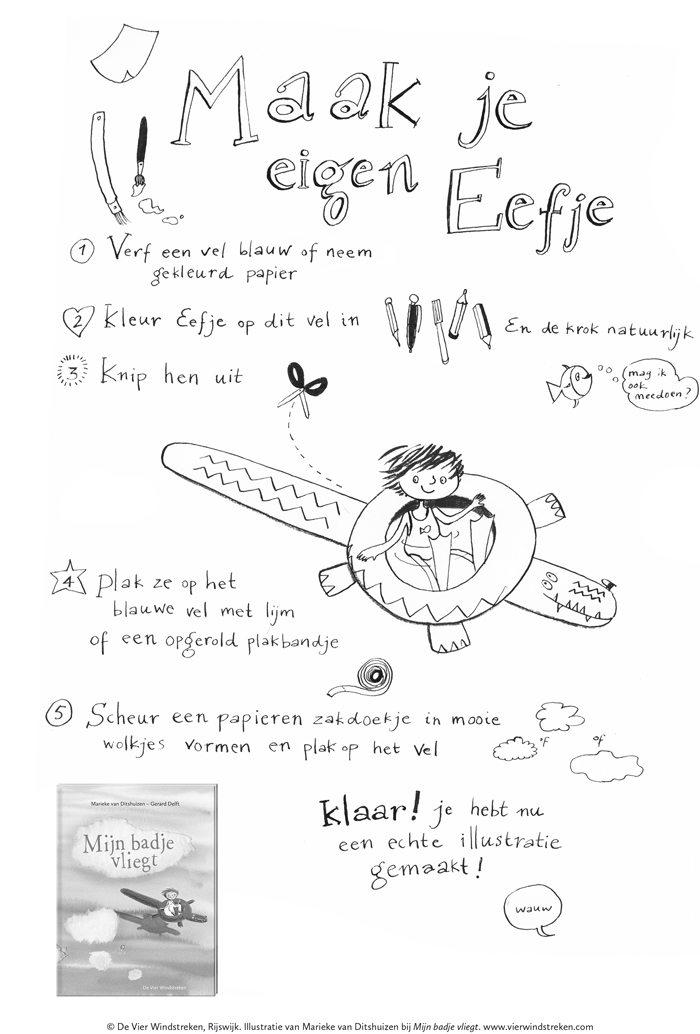 Maak je
eigen Eefje
1 Verf een vel blauw of neem
gekleurd papier
2 Kleur Eefje op dit vel in
En de krok natuurlijk
3 Knip hen uit
mag ik
ook
meedoen?
4 plak ze op het
blauwe vel met lijm
of een opgerold plakbandje
5 Scheur een papieren zakdoekje in mooie
wolkjes vormen en plak op het vel
of
of
klaar! je hebt nu
een echte illustratie
gemaakt!
wauw
Marieke van Ditshuizen – Gerard Delft
Mijn badje
vliegt
De Vier Windstreken
© De Vier Windstreken, Rijswijk. Illustratie van Marieke van Ditshuizen bij Mijn badje vliegt. www.vierwindstreken.com